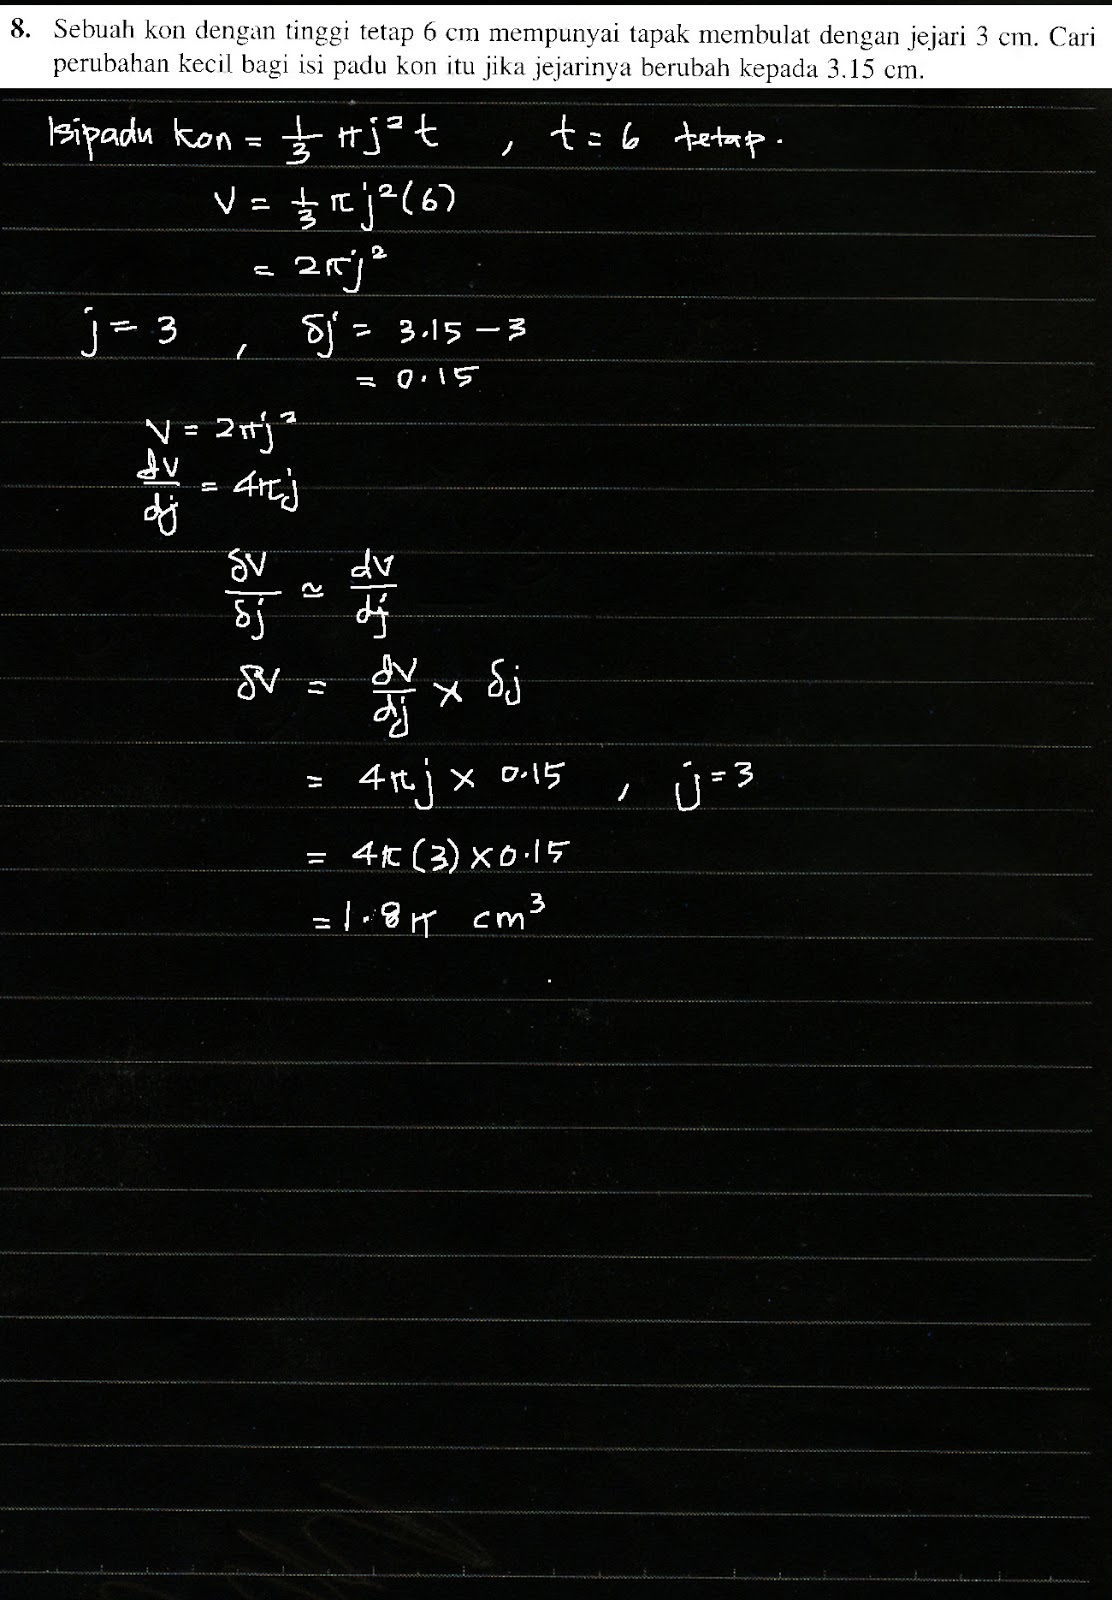 8. Sebuah kon dengan tinggi tetap 6 cm mempunyai tapak membulat dengan jejari 3 cm. Cari
perubahan kecil bagi isi padu kon itu jika jejarinya berubah kepada 3.15 cm.
Isipadu kon = 1/3 πj²t , t = 6 tetap.
V = 1/3 πj²(6)
= 2πj²
j = 3 , δj = 3.15 − 3
= 0.15
V = 2πj²
dv/dj = 4πj
δV/δj ≃ dv/dj
δV = dv/dj × δj
= 4πj × 0.15 , j = 3
= 4π(3) × 0.15
= 1.8π cm³